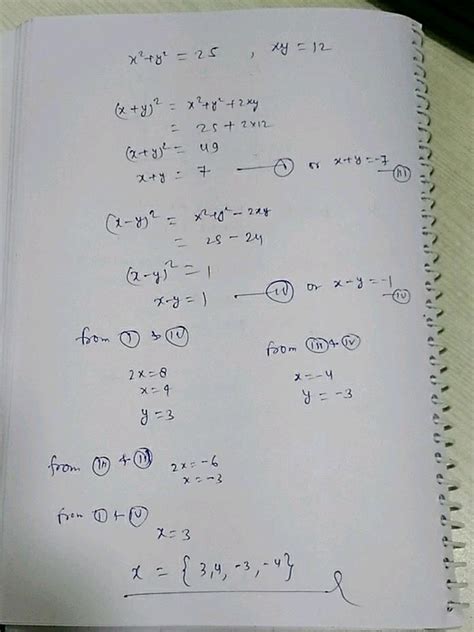 x² + y² = 25 , xy = 12
(x + y)² = x² + y² + 2xy
= 25 + 2x12
(x + y)² = 49
x + y = 7 — (I) or x + y = -7 — (III)
(x - y)² = x² + y² - 2xy
= 25 - 24
(x - y)² = 1
x - y = 1 — (II) or x - y = -1 — (IV)
from (I) &
from (III) & (IV)
2x = 8
x = 4
y = 3
x = -4
y = -3
from (III) & (II) 2x = -6
x = -3
from (I) & (IV)
x = 3
x = {3, 4, -3, -4}